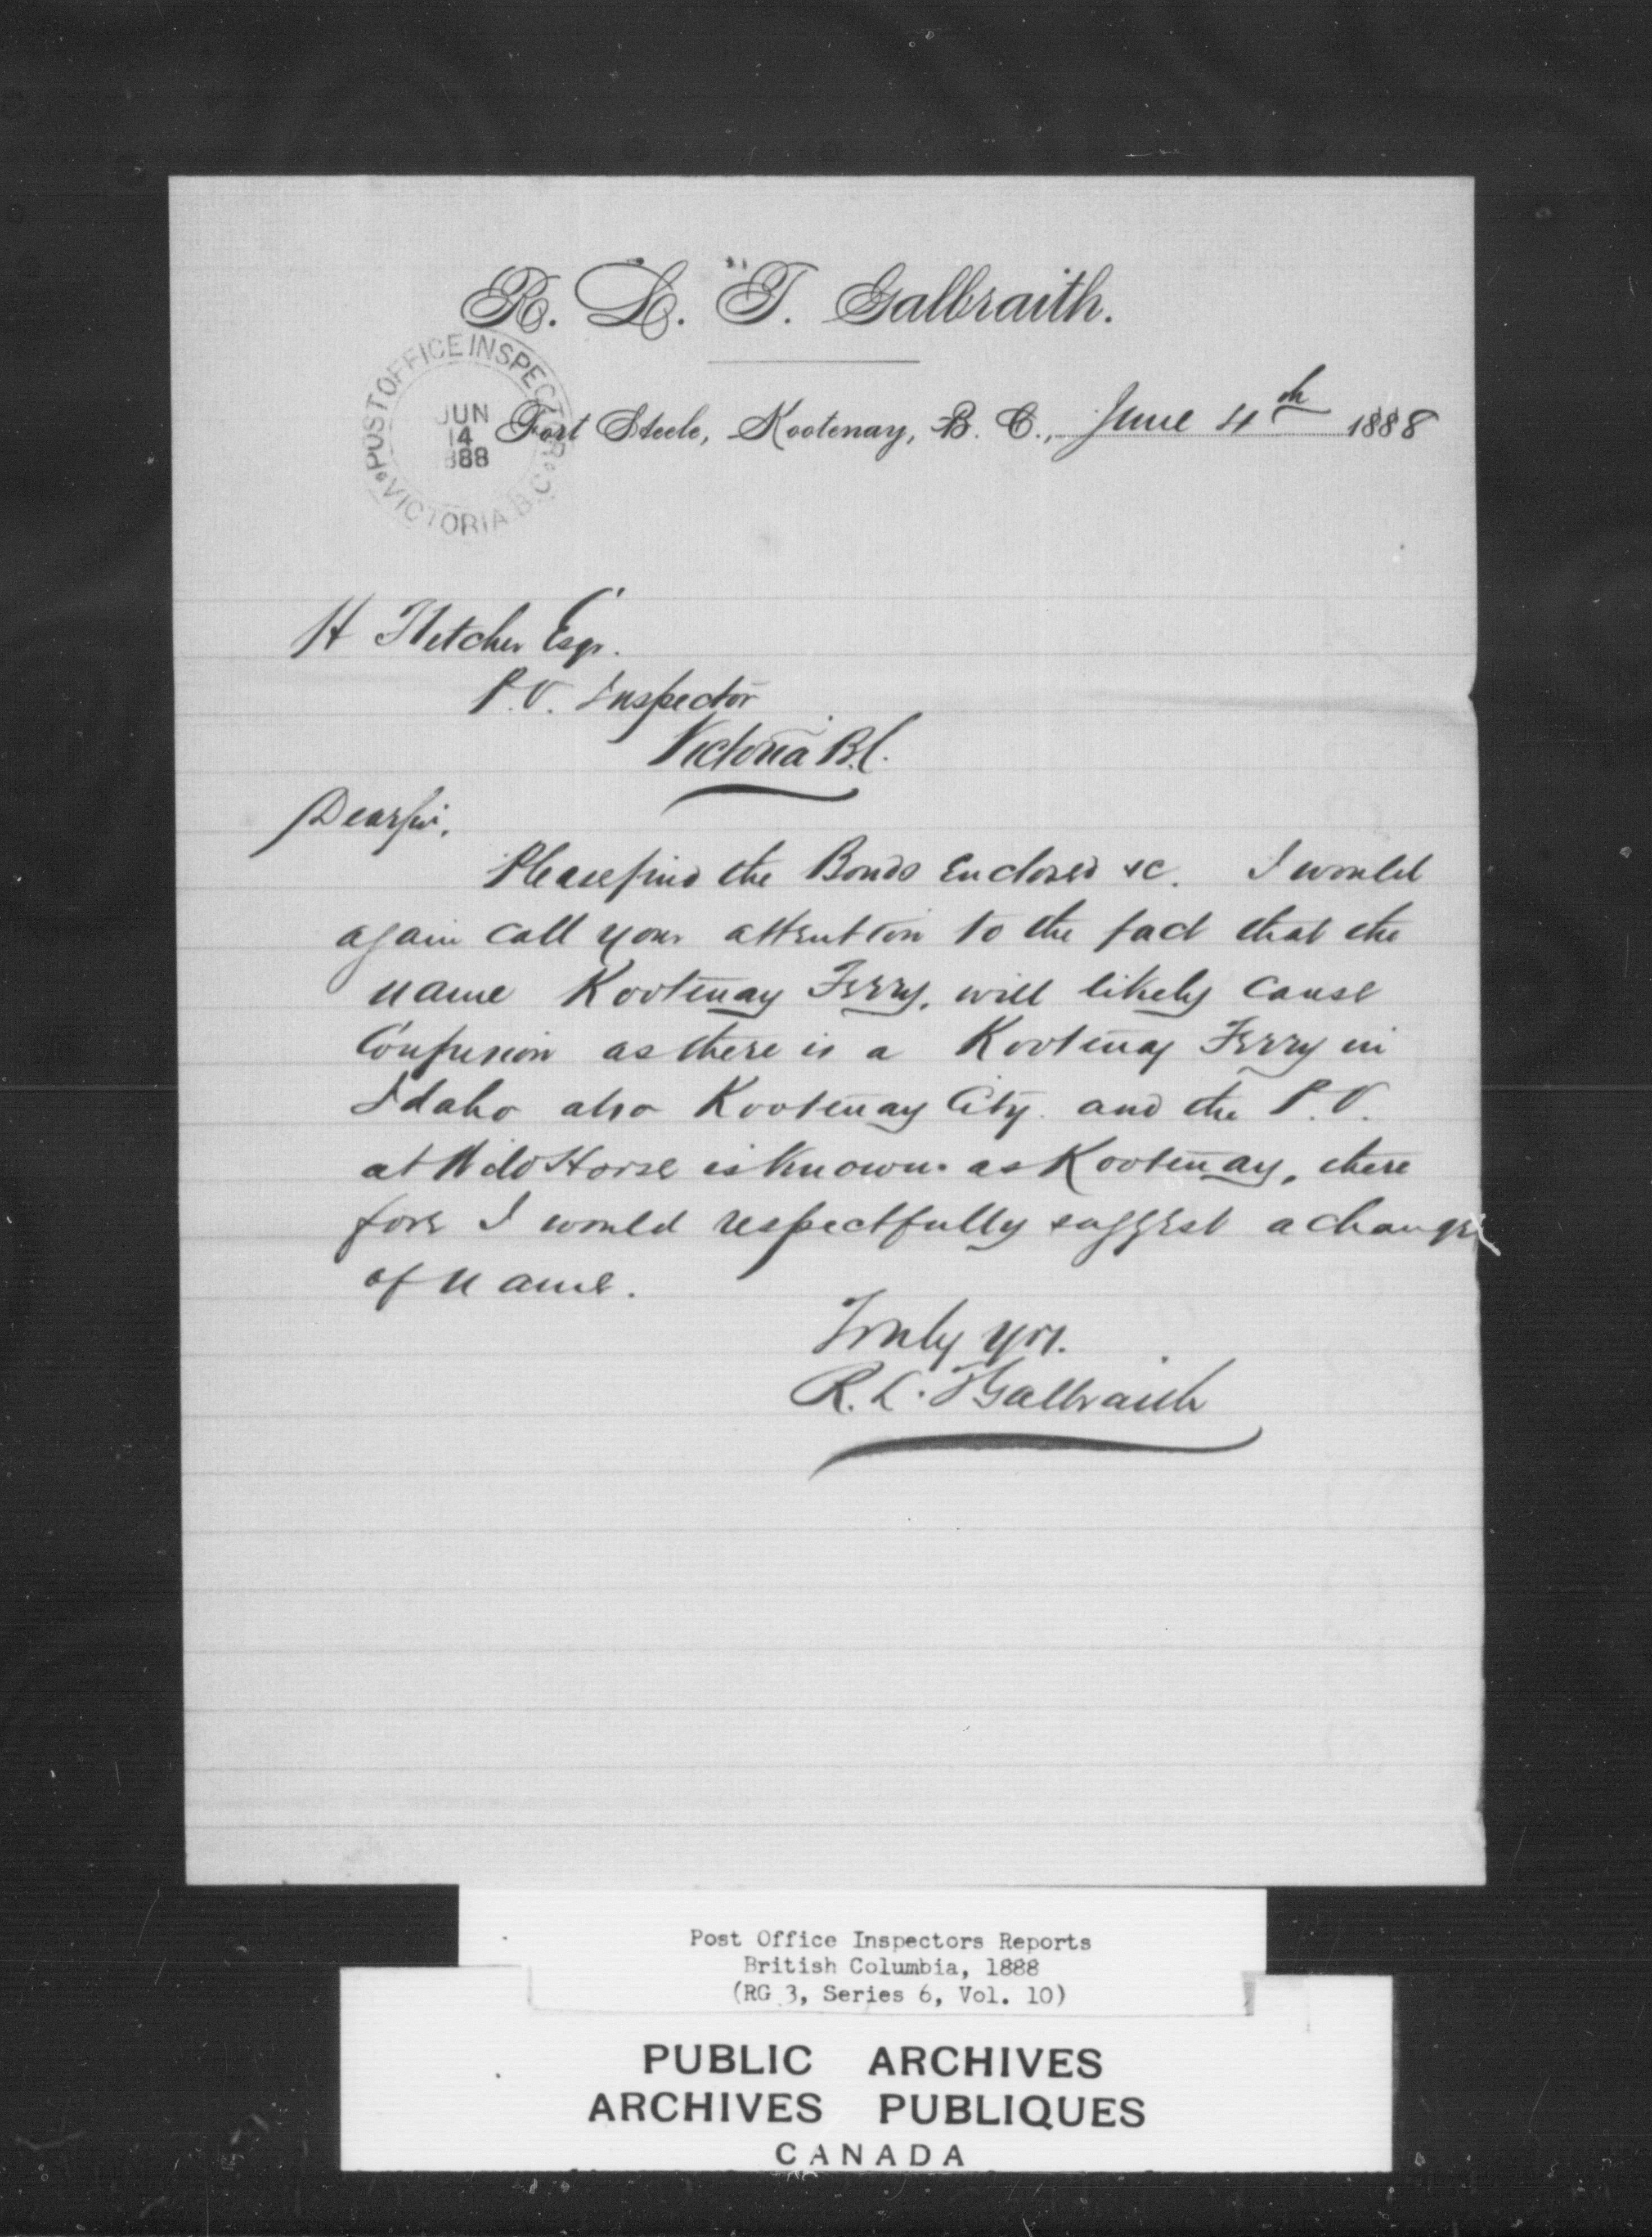 R. L. T. Galbraith.
POST OFFICE INSPECTOR
VICTORIA B.C.
JUN
14
888
Fort Steele, Kootenay, B. C., June 4th 1888
H Fletcher Esqr.
P.O. Inspector
Victoria B.C.
Dear Sir,
Please find the Bonds Enclosed &c. I would
again call your attention to the fact that the
name Kootenay Ferry, will likely cause
Confusion as there is a Kootenay Ferry in
Idaho also Kootenay City and the P.O.
at Wild Horse is known as Kootenay, there
fore I would respectfully suggest a change
of name.
Truly yrs.
R. L. T Galbraith
Post Office Inspectors Reports
British Columbia, 1888
(RG 3, Series 6, Vol. 10)
PUBLIC ARCHIVES
ARCHIVES PUBLIQUES
CANADA